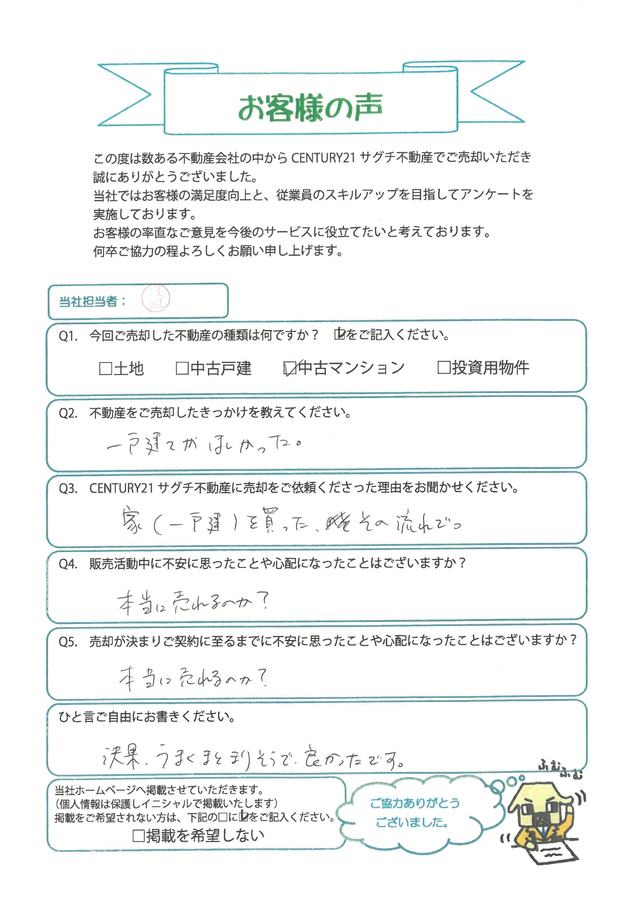 お客様の声
この度は数ある不動産会社の中から CENTURY21 サグチ不動産でご売却いただき
誠にありがとうございました。
当社ではお客様の満足度向上と、従業員のスキルアップを目指してアンケートを
実施しております。
お客様の率直なご意見を今後のサービスに役立てたいと考えております。
何卒ご協力の程よろしくお願い申し上げます。
当社担当者：
Q1. 今回ご売却した不動産の種類は何ですか？ ☑をご記入ください。
□土地 □中古戸建 ☑中古マンション □投資用物件
Q2. 不動産をご売却したきっかけを教えてください。
一戸建てがほしかった。
Q3. CENTURY21 サグチ不動産に売却をご依頼くださった理由をお聞かせください。
家(一戸建)を買った、その流れで。
Q4. 販売活動中に不安に思ったことや心配になったことはございますか？
本当に売れるのか？
Q5. 売却が決まりご契約に至るまでに不安に思ったことや心配になったことはございますか？
本当に売れるのか？
ひと言ご自由にお書きください。
決果、うまくまとまりそうで、良かったです。
ふむふむ
当社ホームページへ掲載させていただきます。
（個人情報は保護しイニシャルで掲載いたします）
掲載をご希望されない方は、下記の□に☑をご記入ください。
□掲載を希望しない
ご協力ありがとう
ございました。